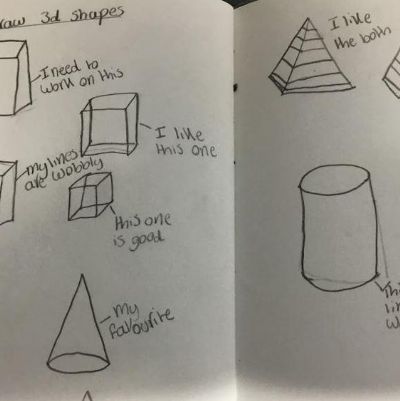 raw 3d shapes
I need to
work on this
I like
this one
my lines
are wobbly
this one
is good
my
favourite
I like
the both